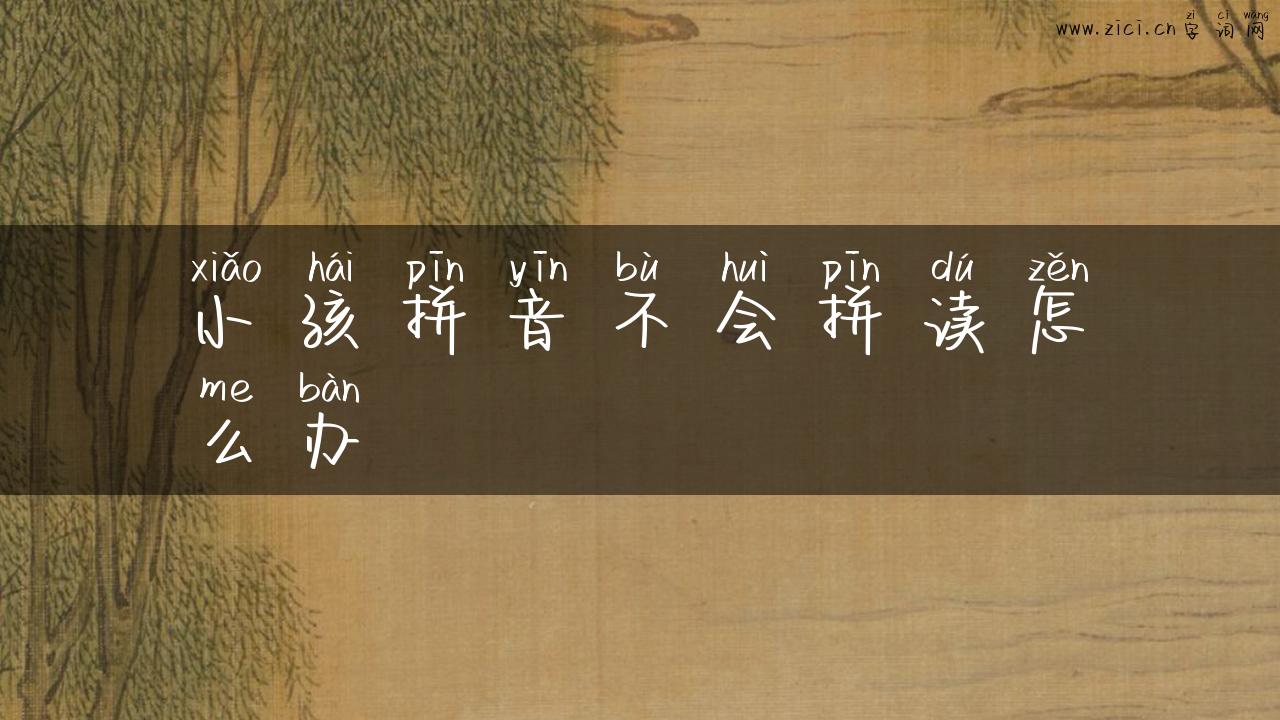 zì cí wǎng
www.zici.cn 字 词 网
xiǎo hái pīn yīn bù huì pīn dú zěn
小 孩 拼 音 不 会 拼 读 怎
me bàn
么 办